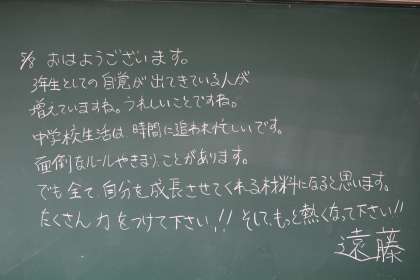 5/8 おはようございます。
3年生としての自覚が出てきている人が
増えていますね。うれしいことですね。
中学校生活は時間に追われ忙しいです。
面倒なルールやきまりことがあります。
でも全て、自分を成長させてくれる材料になると思います。
たくさん力をつけて下さい!! そして、もっと熱くなって下さい!!
遠藤